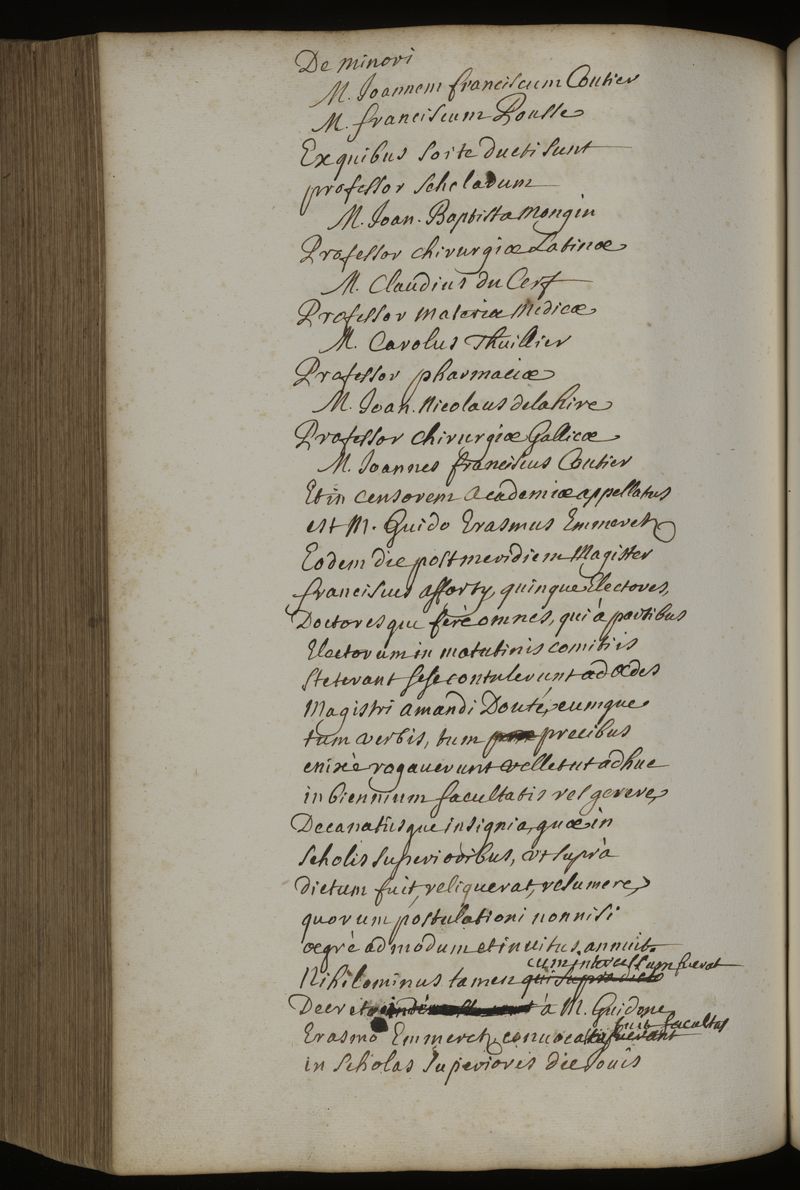 De minori
M. Joannem franciscum Coutier
M. franciscum Pousse
Ex quibus sorte ducti sunt
professor scholarum
M. Joan. Baptista Mongin
Professor chirurgiæ Latinæ
M. Claudius du Cerf
Professor materiæ Medicæ
M. Carolus Thuillier
Professor pharmaciæ
M. Joan. Nicolaus delahire
Professor chirurgiæ Gallicæ
M. Joannes franciscus Coutier
Et in censorem academiæ appellatus
est M. Guido Erasmus Emmerets
Eodem die post meridiem Magister
franciscus afforty, quinque Electores,
Doctoresque ferè omnes, qui à partibus
Electorum in matutinis comitiis
steterant sese contulerunt ad ædes
Magistri amandi Douté, eumque
tum verbis, tum precibus
enixè rogaverunt vellet ut adhuc
in biennium facultatis res gerere,
Decanatûsque insignia, quæ in
scholis superioribus, ut suprà
dictum fuit, reliquerat, resumere,
quorum postulationi nonnisi
ægrè admodum et invitus annuit.
cum intercessum fuerat
Nihilominus tamen qui supra dicto
Decreto à M. Guidone
fuit facultas
Erasmo Emmerets convocata fuerant
in scholas superiores die Jovis